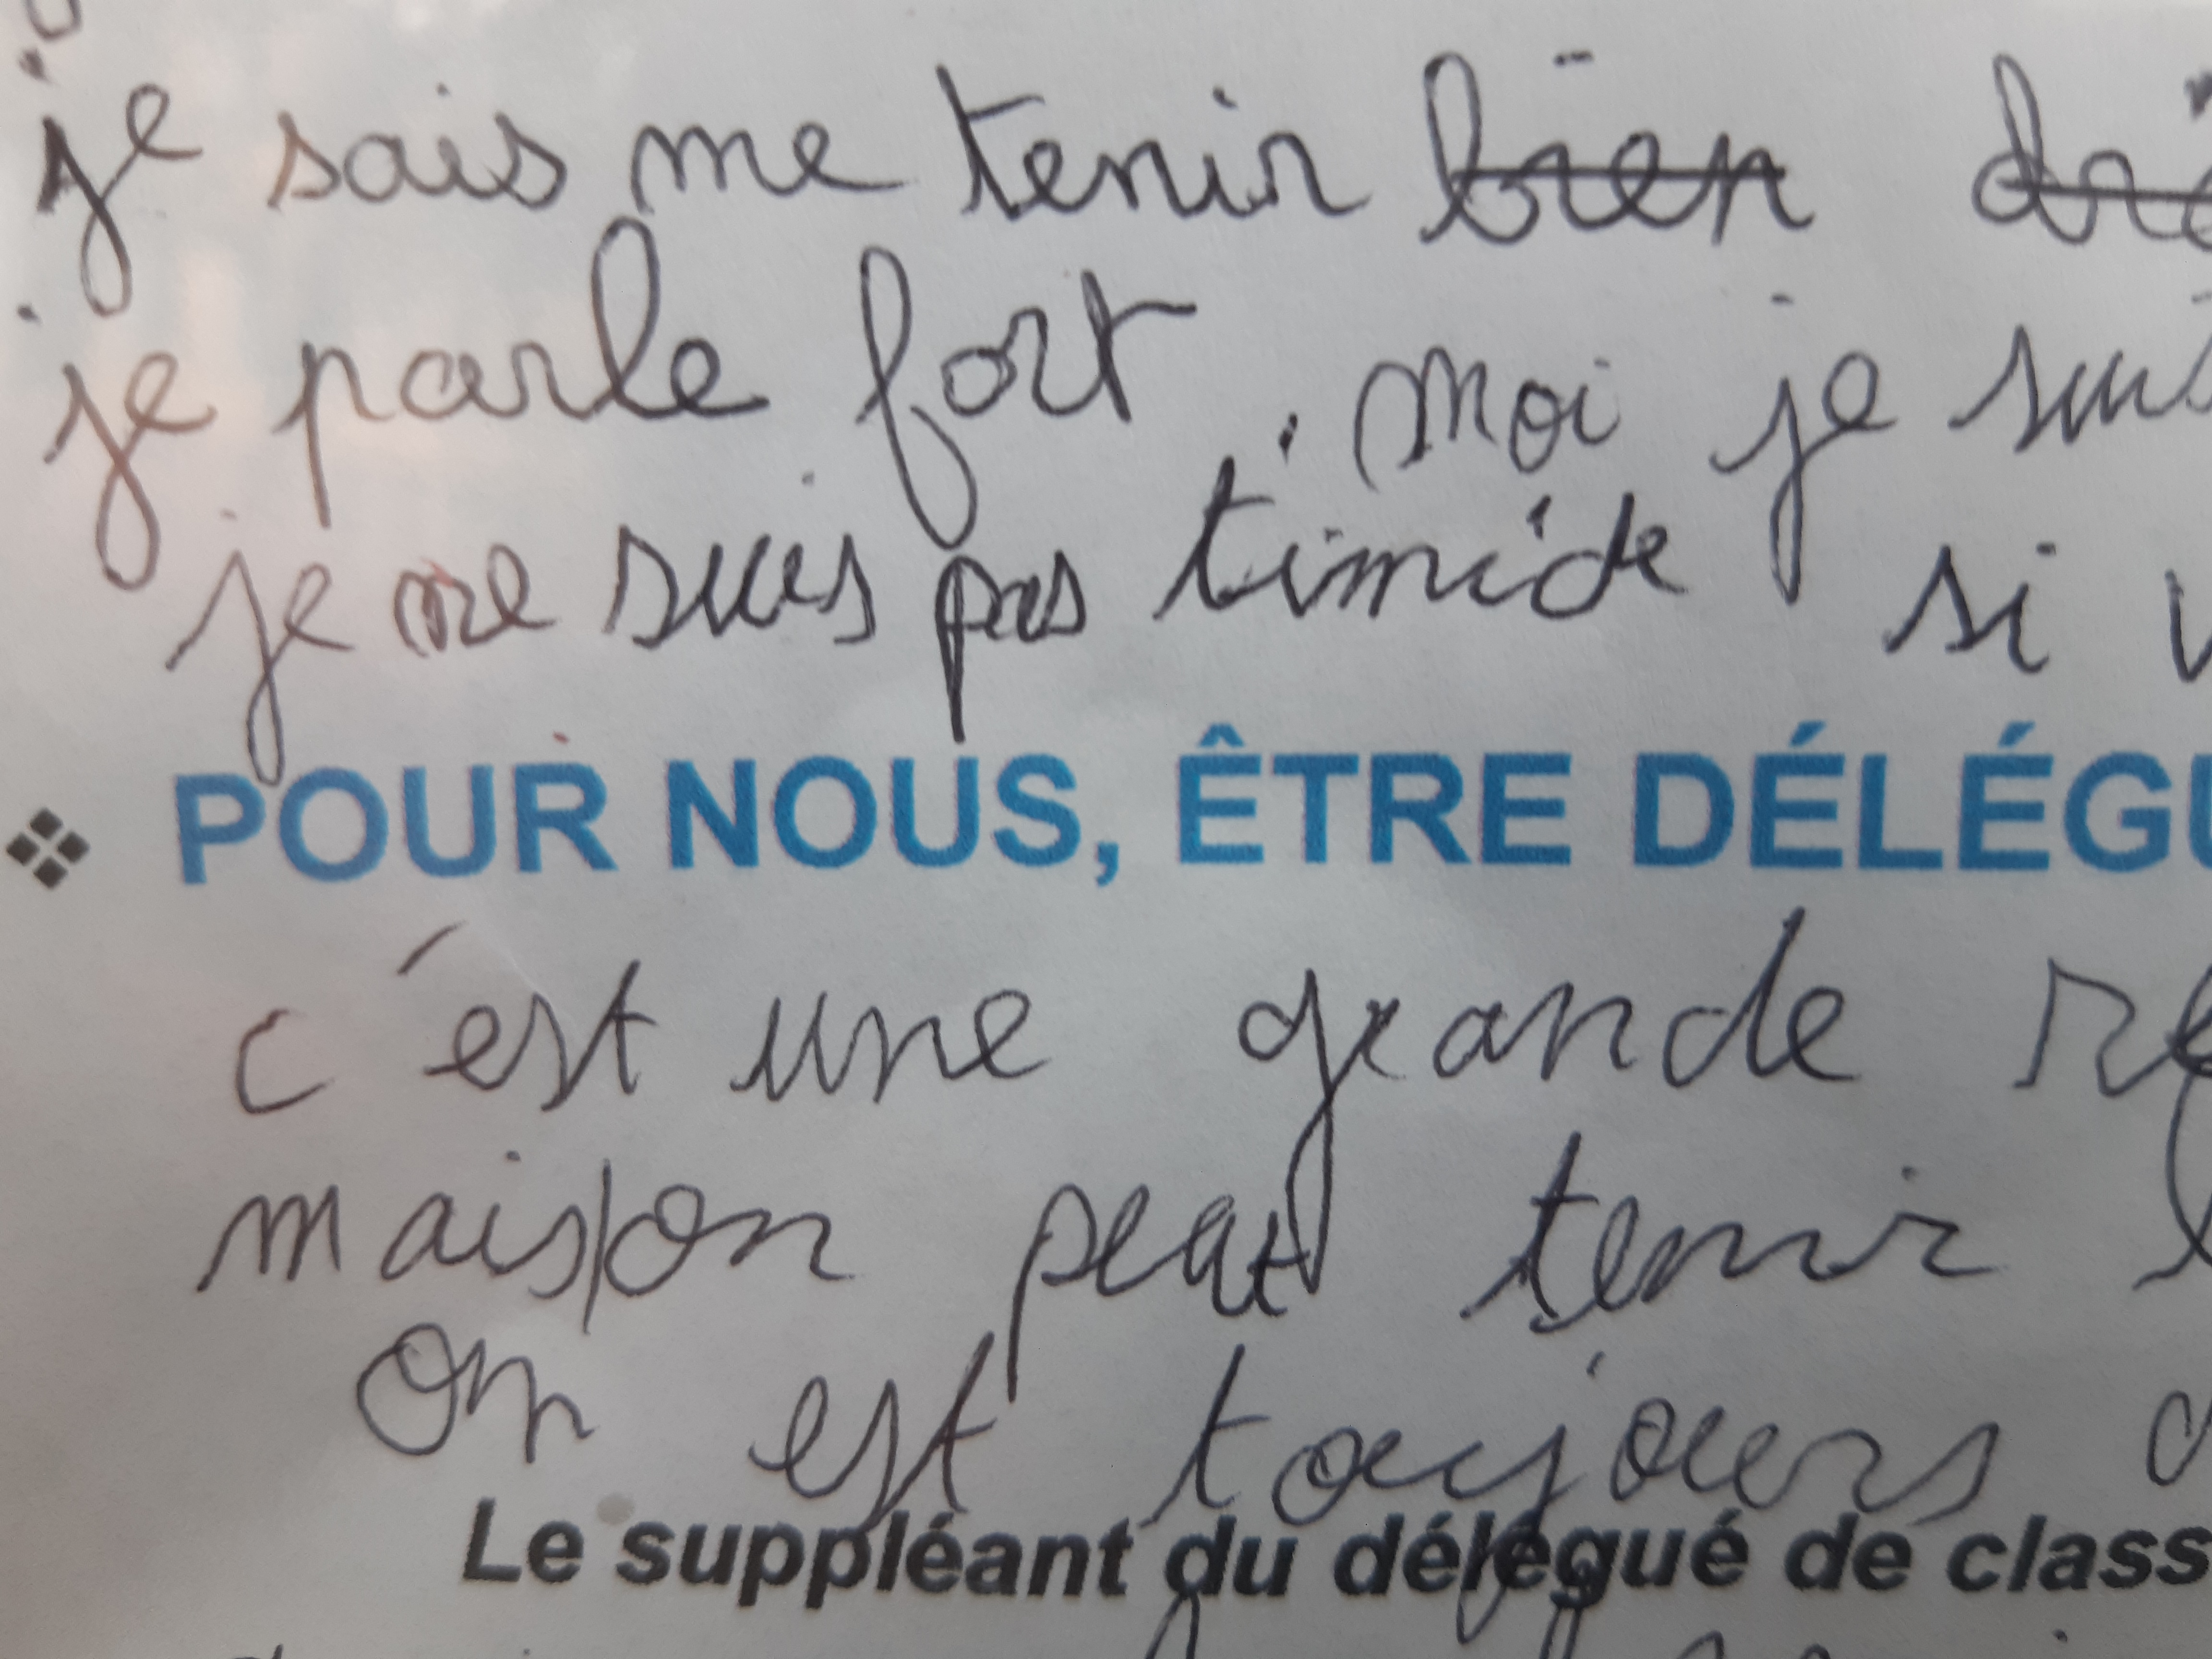 je sais me tenir bien
je parle fort. moi je suis
je ne suis pas timide si
❖ POUR NOUS, ÊTRE DÉLÉGU
c'est une grande
mais on peut tenir
on est toujours
Le suppléant du délégué de class